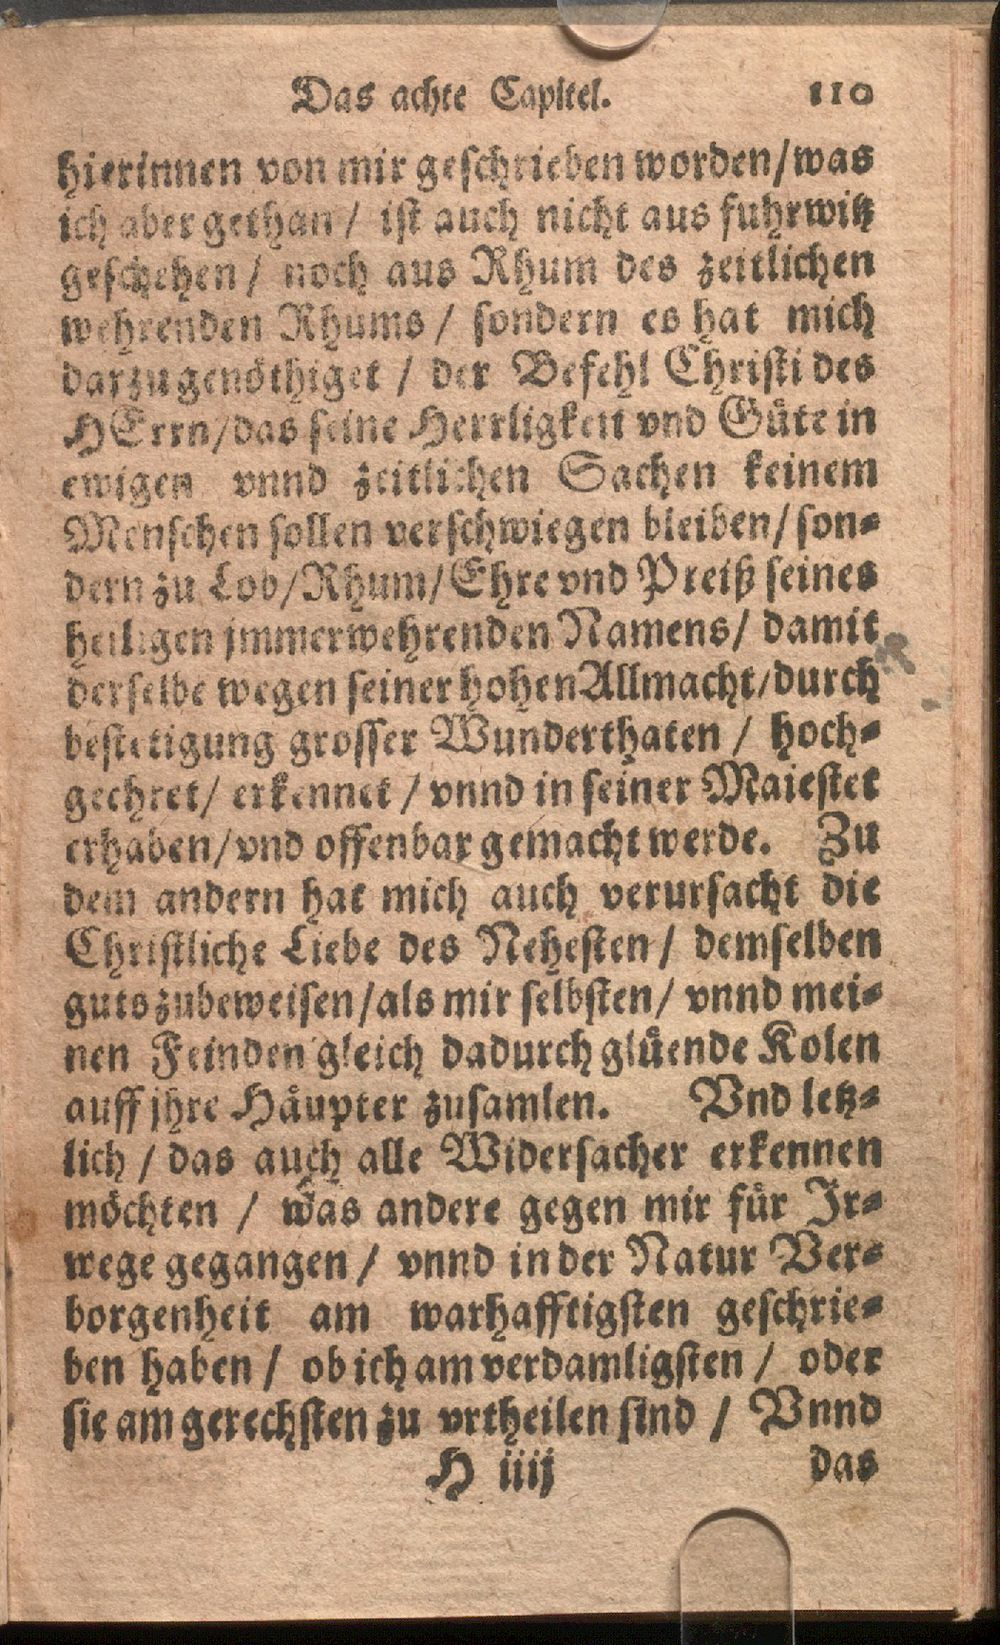 Das achte Capitel. 110
hierinnen von mir geschrieben worden/was
ich aber gethan / ist auch nicht aus fuhrwitz
geschehen / noch aus Rhum des zeitlichen
wehrenden Rhums / sondern es hat mich
darzu genöthiget / der Befehl Christi des
HErrn/das seine Herrligkeit vnd Güte in
ewigen vnnd zeitlichen Sachen keinem
Menschen sollen verschwiegen bleiben/son-
dern zu Lob/Rhum/Ehre vnd Preiß seines
heiligen jmmerwehrenden Namens/ damit
derselbe wegen seiner hohen Allmacht/durch
bestetigung grosser Wunderthaten / hoch-
geehret/ erkennet / vnnd in seiner Maiestet
erhaben/vnd offenbar gemacht werde. Zu
dem andern hat mich auch verursacht die
Christliche Liebe des Nehesten / demselben
guts zubeweisen/als mir selbsten/ vnnd mei-
nen Feinden gleich dadurch glüende Kolen
auff jhre Häupter zusamlen. Vnd letz-
lich / das auch alle Widersacher erkennen
möchten / was andere gegen mir für Ir-
wege gegangen / vnnd in der Natur Ver-
borgenheit am warhafftigsten geschrie-
ben haben / ob ich am verdamligsten / oder
sie am gerechsten zu vrtheilen sind / Vnnd
H iiij das